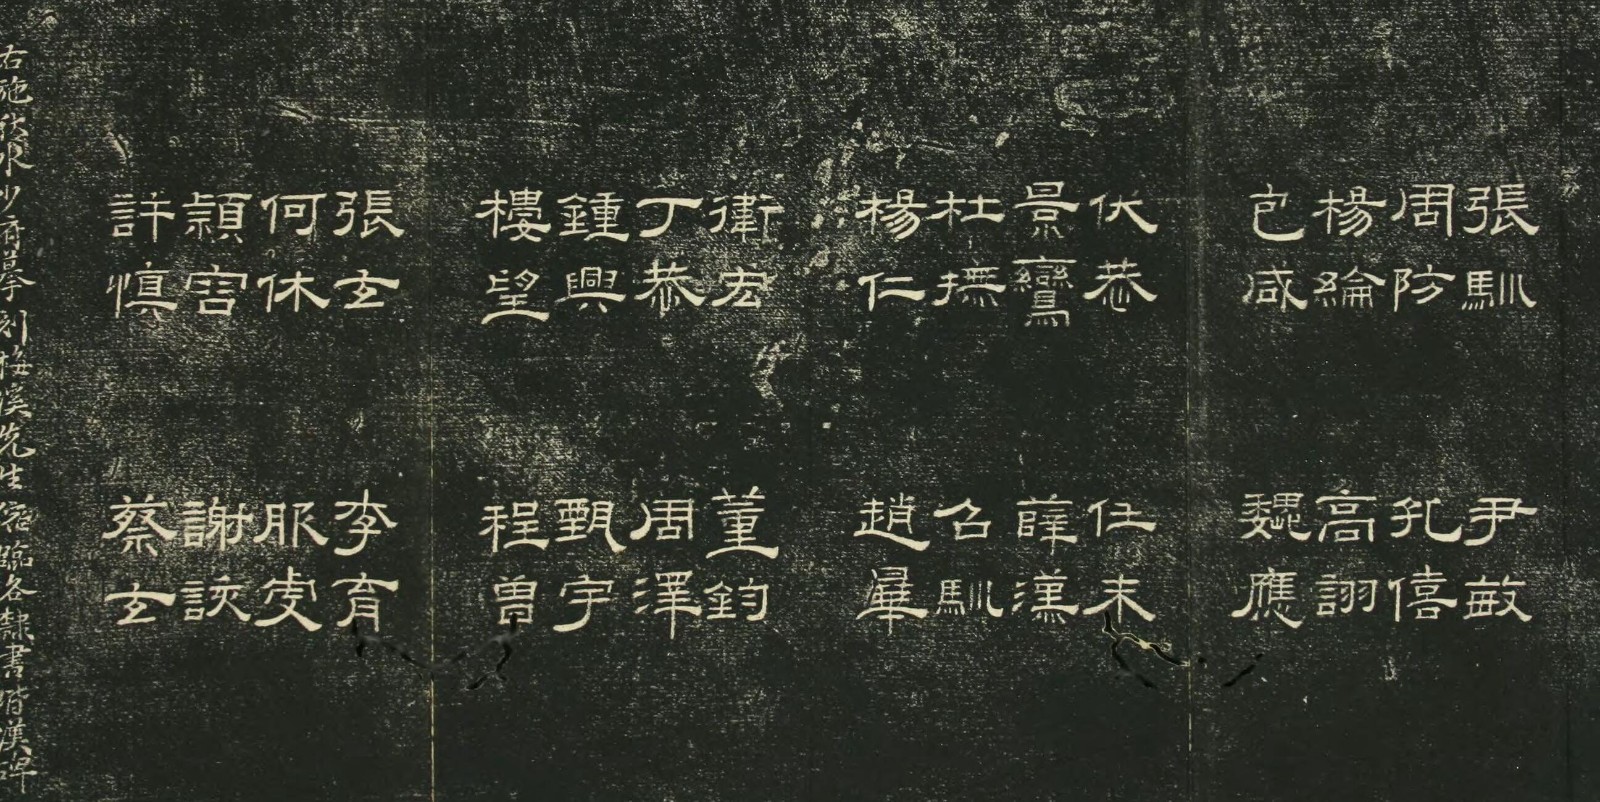 張馴 尹敏
周防 孔僖
楊綸 高詡
包咸 魏應
伏恭 任末
景鸞 薛漢
杜撫 召馴
楊仁 趙曄
衛宏 董鈞
丁恭 周澤
鍾興 甄宇
樓望 程曾
張玄 李育
何休 服虔
潁容 謝該
許慎 蔡玄
右施秋水少府摹刻梅溪先生縮臨各隸書皆漢碑